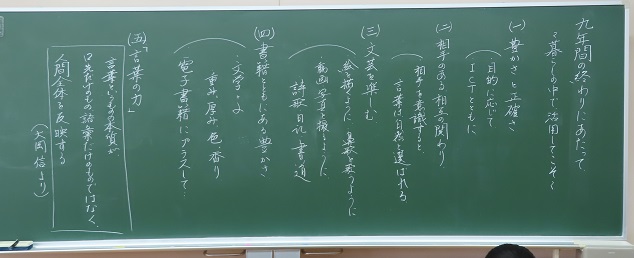 九年間の終わりにあたって
〜暮らしの中で活用してこそ〜
(一) 豊かさと正確さ
目的に応じて
ICTとともに
(二) 相手のある相互の関わり
相手を意識すると、
言葉は自然と選ばれる
(三) 文芸を楽しむ
絵を描くように 墨を歌うように
動画 写真を撮るように
詩歌 日記 書道
(四) 書籍とともにある豊かさ
文字こそ
重み 厚み 色 香り
電子書籍にプラスして…
(五) 「言葉の力」
言葉というものの本質が、
口先だけのもの 語彙だけのものではなく、
人間全体を反映する
(大岡信より)